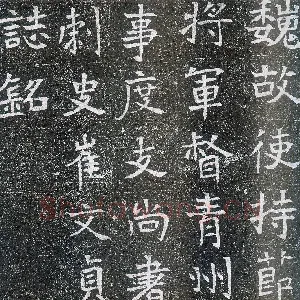 魏故使持節
將軍督青州
事度支尚書
刺史崔文貞
誌銘